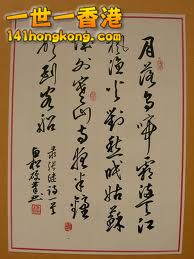 一世一香港
141hongkong.com
月落烏啼霜滿天江
楓漁火對愁眠姑蘇
城外寒山寺夜半鐘
聲到客船
張繼詩一首